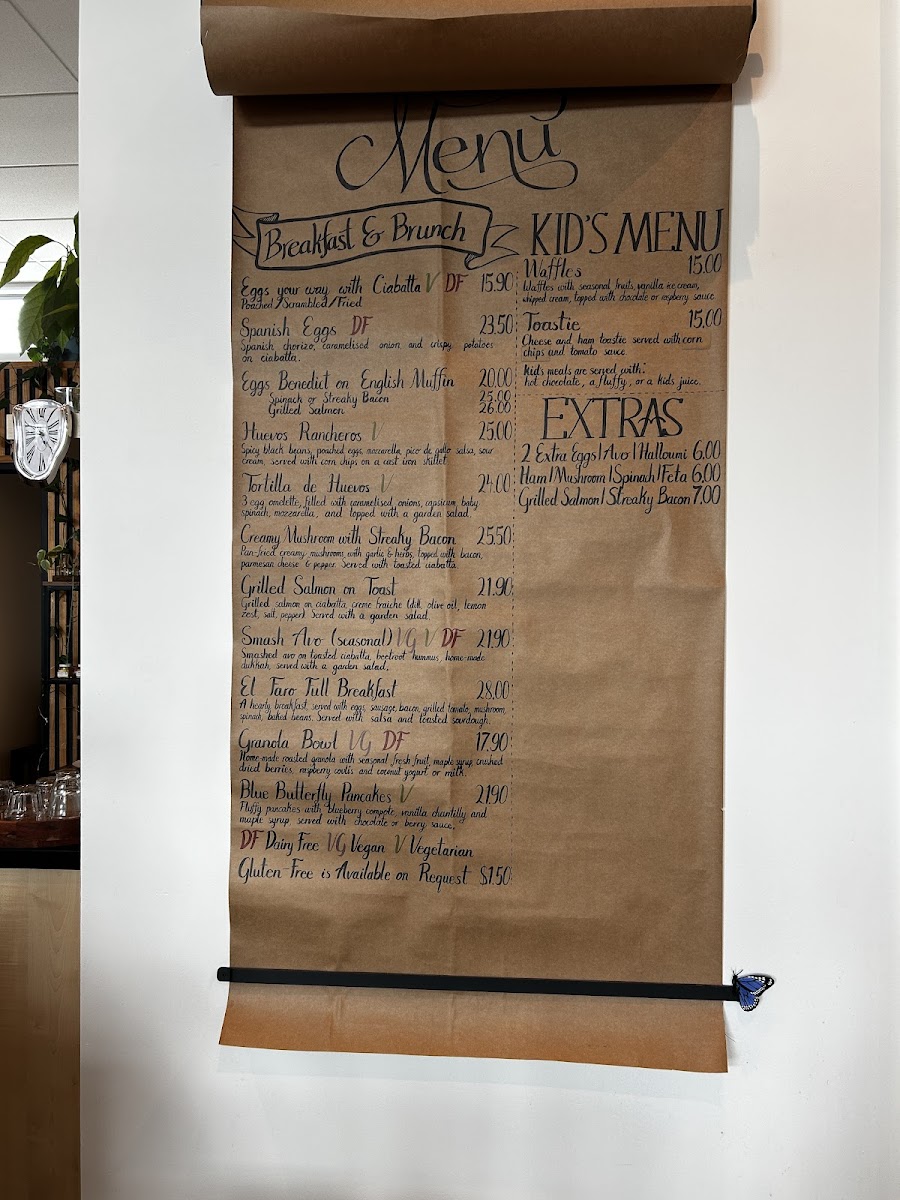 Menu
Breakfast & Brunch
Eggs your way with Ciabatta V DF 15.90
Poached/Scrambled/Fried
Spanish Eggs DF 23.50
Spanish chorizo, caramelised onion and crispy potatoes
on ciabatta.
Eggs Benedict on English Muffin 20.00
Spinach or Streaky Bacon 25.00
Grilled Salmon 26.00
Huevos Rancheros V 25.00
Spicy black beans, poached eggs, mozzarella, pico de gallo salsa, sour
cream, served with corn chips on a cast iron skillet
Tortilla de Huevos V 24.00
3 egg omelette, filled with caramelised onions, capsicum, baby
spinach, mozzarella, and topped with a garden salad.
Creamy Mushroom with Streaky Bacon 25.50
Pan-fried creamy mushrooms with garlic & herbs, topped with bacon,
parmesan cheese & pepper. Served with toasted ciabatta.
Grilled Salmon on Toast 21.90
Grilled salmon on ciabatta, creme fraiche (dill, olive oil, lemon
zest, salt, pepper) Served with a garden salad.
Smash Avo (seasonal) VG V DF 21.90
Smashed avo on toasted ciabatta, beetroot hummus, home-made
dukkah, served with a garden salad.
El Faro Full Breakfast 28.00
A hearty breakfast, served with eggs, sausage, bacon, grilled tomato, mushroom,
spinach, baked beans. Served with salsa and toasted sourdough.
Granola Bowl VG DF 17.90
Home-made roasted granola with seasonal fresh fruit, maple syrup, crushed
dried berries, raspberry coulis and coconut yogurt or milk.
Blue Butterfly Pancakes V 21.90
Fluffy pancakes with blueberry compote, vanilla chantilly and
maple syrup served with chocolate or berry sauce.
DF Dairy Free VG Vegan V Vegetarian
Gluten-Free is Available on Request $1.50
KID'S MENU
Waffles 15.00
Waffles with seasonal fruits, vanilla ice cream,
whipped cream, topped with chocolate or raspberry sauce
Toastie 15.00
Cheese and ham toastie served with corn
chips and tomato sauce
Kid's meals are served with:
hot chocolate, a fluffy, or a kids juice.
EXTRAS
2 Extra Eggs|Avo|Halloumi 6.00
Ham|Mushroom|Spinach|Feta 6.00
Grilled Salmon|Streaky Bacon 7.00